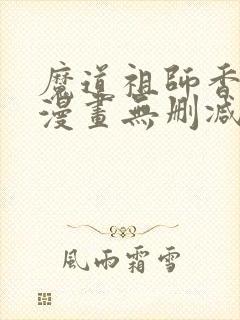 魔道祖師香
漫畫無刪減
風雨霜雪